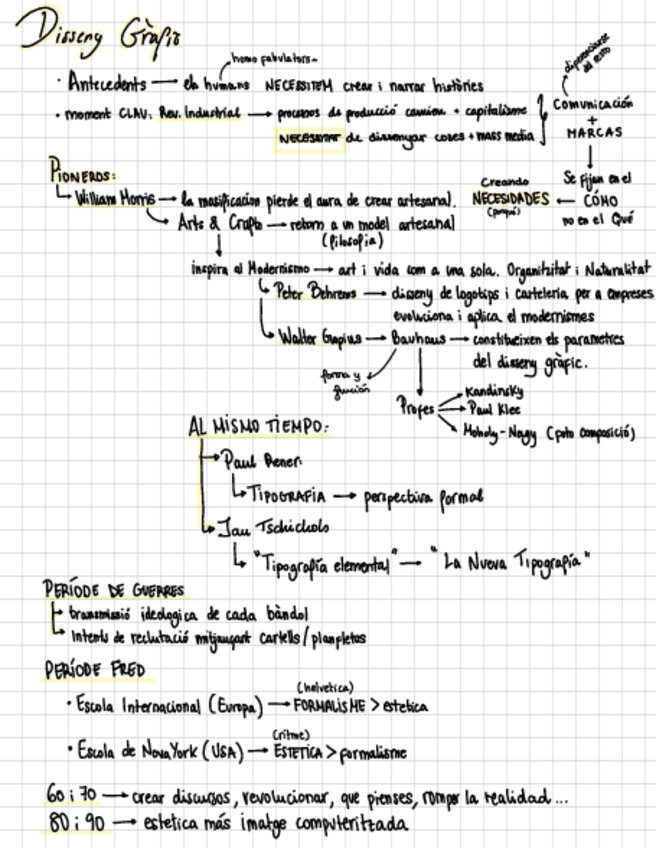 Disseny Gràfic
homo fabulators
· Antecedents → els humans NECESSITEM crear i narrar històries
diferenciarse del resto
· moment CLAU: Rev. Industrial → processos de producció canvien + capitalisme
NECESSITAT de dissenyar coses + mass media
Comunicación
+
MARCAS
Se fijan en el
CÓMO
no en el Qué
Creando
NECESIDADES
(porqué)
PIONEROS:
William Morris → la masificación pierde el aura de crear artesanal.
Arts & Crafts → retorn a un model artesanal
(filosofia)
inspira al Modernismo → art i vida com a una sola. Organitzitat i Naturalitat
Peter Behrens → disseny de logotips i cartelería per a empreses
evoluciona i aplica el modernismes
Walter Gropius → Bauhaus → constitueixen els parametres
del disseny gràfic.
forma y
función
Profes
Kandinsky
Paul Klee
Moholy-Nagy (foto composició)
AL MISMO TIEMPO:
Paul Rener:
TIPOGRAFÍA → perspectiva formal
Jan Tschichols
"Tipografía elemental" — "La Nueva Tipografía"
PERÍODE DE GUERRES
transmissió ideologica de cada bàndol
Intents de reclutació mitjançant cartells/planfletos
PERÍODE FRED
(helvetica)
· Escola Internacional (Europa) → FORMALISME > estetica
(ritme)
· Escola de Nova York (USA) → ESTETICA > formalisme
60 i 70 → crear discursos, revolucionar, que pienses, romper la realidad...
80 i 90 → estetica más imatge computeritzada